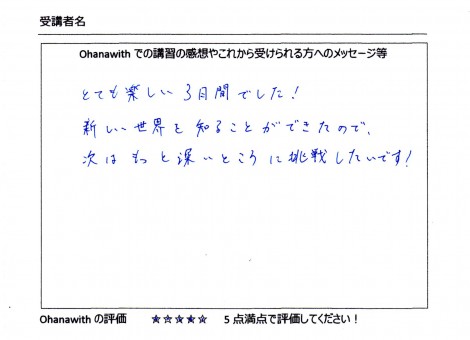 受講者名
Ohanawith での講習の感想やこれから受けられる方へのメッセージ等
とても楽しい3日間でした！
新しい世界を知ることができたので、
次はもっと深いところに挑戦したいです！
Ohanawith の評価 ★★★★★ 5点満点で評価してください！